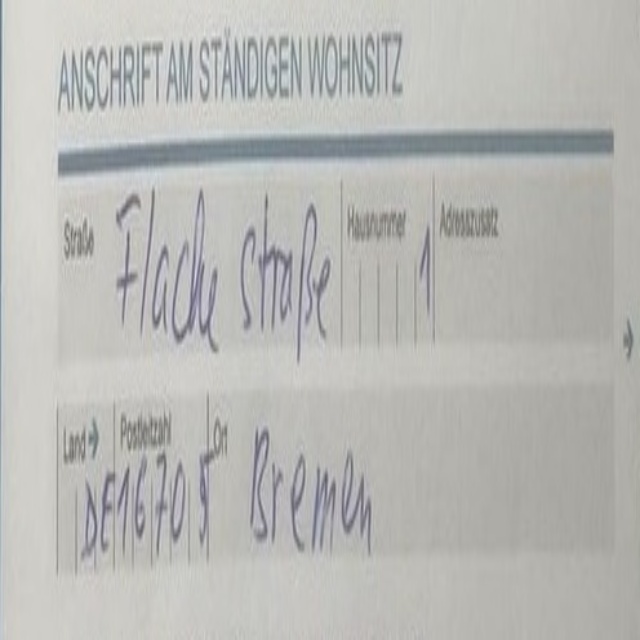 ANSCHRIFT AM STÄNDIGEN WOHNSITZ
Straße Flache straße Hausnummer 1 Adresszusatz
Land → Postleitzahl Ort
DE 16705 Bremen